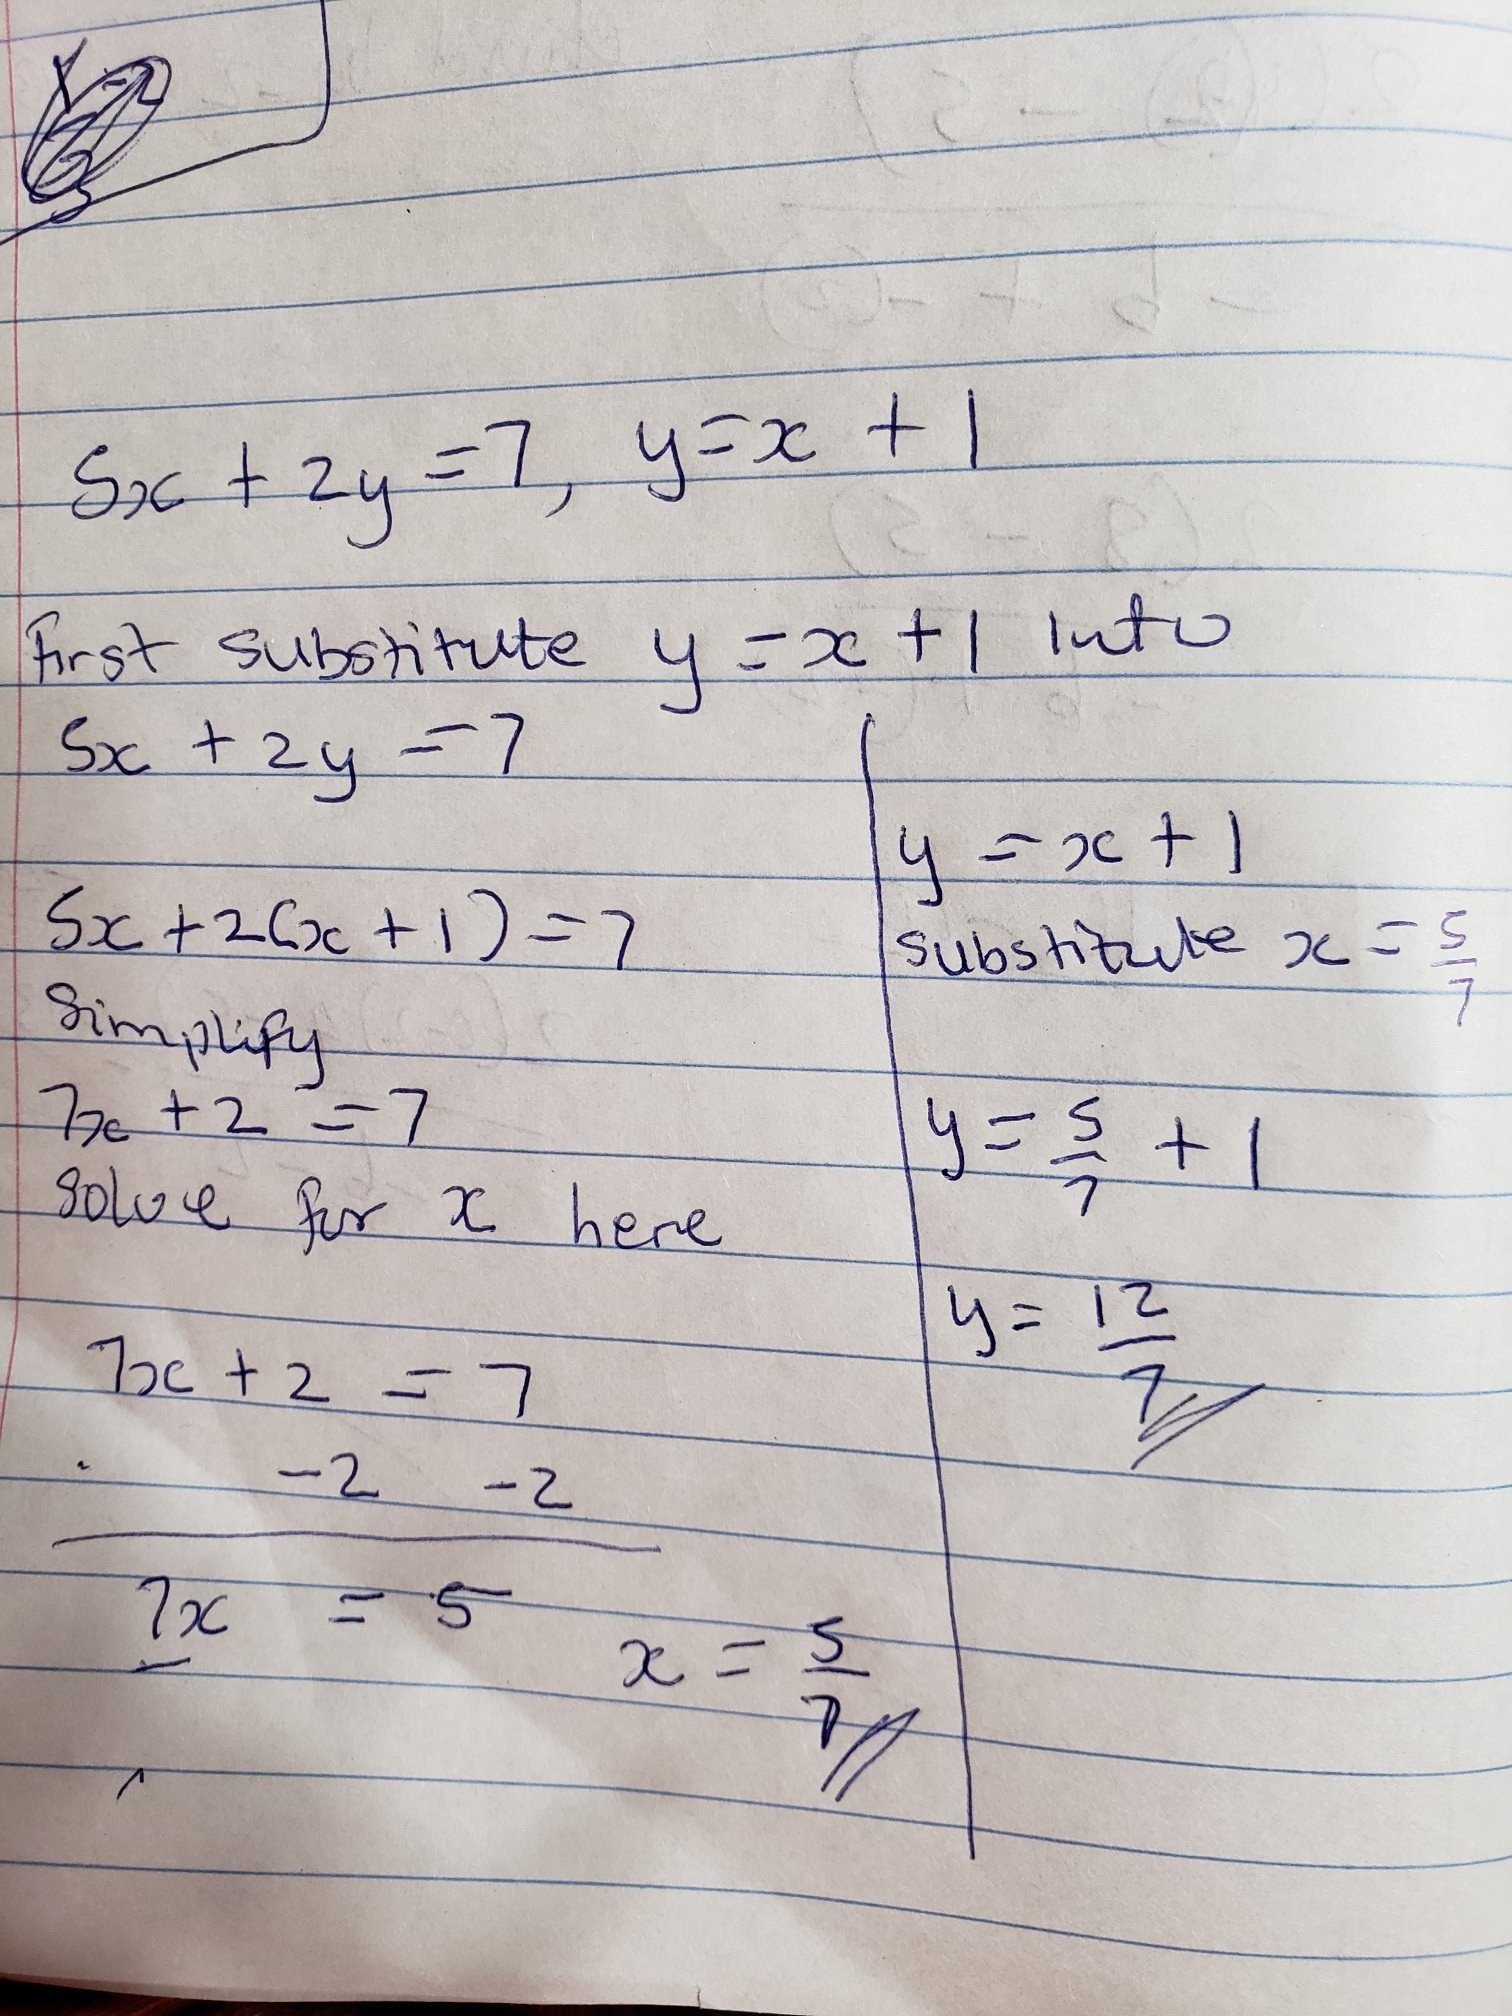 5x + 2y = 7, y = x + 1
First substitute y = x + 1 into
5x + 2y = 7
5x + 2(x + 1) = 7
Simplify
7x + 2 = 7
Solve for x here
7x + 2 = 7
-2 -2
7x = 5
x = 5/7
y = x + 1
substitute x = 5/7
y = 5/7 + 1
y = 12/7